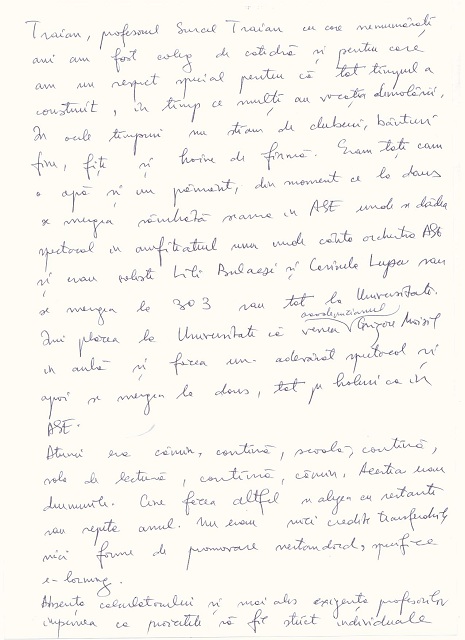 Traian, profesorul Surcel Traian cu care nenumărați
ani am fost coleg de catedră și pentru care
am un respect special pentru că tot timpul a
construit, în timp ce mulți au vocația demolării.
În acele timpuri nu știam de cluburi, băuturi
fine, fițe și haine de firmă. Eram toți cam
o apă și un pământ, din moment ce la dans
se mergea sâmbătă seara in ASE unde se dădea
spectacol in amfiteatrul unu unde cânta orchestra ASE
și erau soliști Lili Bulaesi și Consuela sau
se mergea la 303 sau tot la Universitate.
academicianul
Îmi plăcea la Universitate că venea Grigore Moisil
in aulă și făcea un adevărat spectacol și
apoi se mergea la dans, tot pe holuri ca în
ASE.
Atunci era cămin, cantină, școală, cantină,
sala de lectură, cantină, cămin. Acestea erau
drumurile. Cine făcea altfel se alegea cu restanțe
sau repeta anul. Nu erau nici credite transferabile
nici forme de promovare nestandard, specifice
e-learning.
Absența calculatorului și mai ales exigența profesorilor
impunea ca proiectele să fie strict individuale